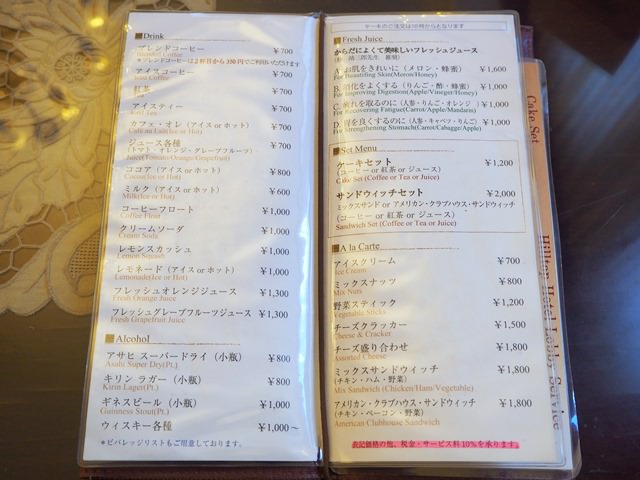 ■Drink
ブレンドコーヒー ￥700
Blended Coffee
＊ブレンドコーヒーは2杯目から350円でご利用いただけます
アイスコーヒー ￥700
Iced Coffee
紅茶 ￥700
アイスティー ￥700
Iced Tea
カフェ・オレ（アイス or ホット） ￥700
Cafe au Lait(Ice or Hot)
ジュース各種 ￥700
（トマト・オレンジ・グレープフルーツ）
Juice(Tomato/Orange/Grapefruit)
ココア（アイス or ホット） ￥800
Cocoa(Ice or Hot)
ミルク（アイス or ホット） ￥600
Milk(Ice or Hot)
コーヒーフロート ￥1,000
Coffee Float
クリームソーダ ￥1,000
Cream Soda
レモンスカッシュ ￥1,000
Lemon Squash
レモネード（アイス or ホット） ￥1,000
Lemonade(Ice or Hot)
フレッシュオレンジジュース ￥1,300
Fresh Orange Juice
フレッシュグレープフルーツジュース ￥1,300
Fresh Grapefruit Juice
■Alcohol
アサヒ スーパードライ（小瓶） ￥800
Asahi Super Dry(Pt.)
キリン ラガー（小瓶） ￥800
Kirin Lager(Pt.)
ギネスビール（小瓶） ￥1,000
Guinness Stout(Pt.)
ウィスキー各種 ￥1,000～
＊ビバレッジリストもご用意しております。
ケーキのご注文は10時からとなります
■Fresh Juice
からだによくて美味しいフレッシュジュース
A. お肌をきれいに（メロン・蜂蜜） ￥1,600
For Beautifing Skin(Meron/Honey)
B. 消化をよくする（りんご・酢・蜂蜜）
For Improving Digestion(Apple/Vineger/Honey)
C. 疲れを取るのに（人参・りんご・オレンジ）
For Recovering Fatigue(Carrot/Apple/Mandarin)
D. 胃を良くするのに（人参・キャベツ・りんご）
For Strengthening Stomach(Carrot/Cabagge/Apple)
■Set Menu
ケーキセット ￥1,200
（コーヒー or 紅茶 or ジュース）
Cake Set (Coffee or Tea or Juice)
サンドウィッチセット ￥2,000
ミックスサンド or アメリカン・クラブハウス・サンドウィッチ
（コーヒー or 紅茶 or ジュース）
Sandwich Set (Coffee or Tea or Juice)
■A la Carte
アイスクリーム ￥700
Ice Cream
ミックスナッツ ￥800
Mix Nuts
野菜スティック ￥1,200
Vegetable Sticks
チーズクラッカー ￥1,500
Cheese & Cracker
チーズ盛り合わせ ￥1,800
Assorted Cheese
ミックスサンドウィッチ ￥1,800
（チキン・ハム・野菜）
Mix Sandwich (Chicken/Ham/Vegetable)
アメリカン・クラブハウス・サンドウィッチ ￥1,800
（チキン・ベーコン・野菜）
American Clubhouse Sandwich
表記価格の他、税金・サービス料10%を承ります。
Cake Set
Hilltop Hotel Lobby Service